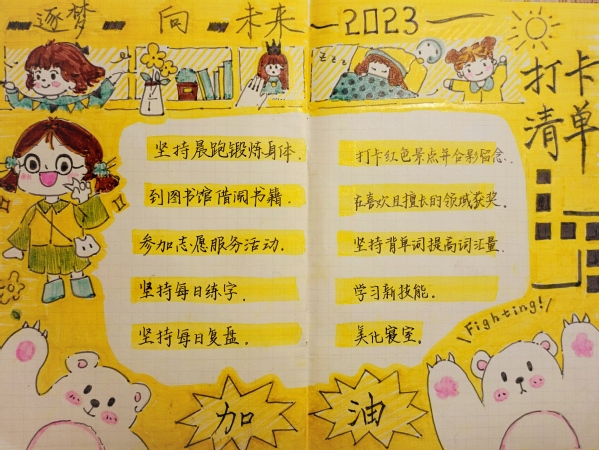 逐梦 — 向 — 未来 — 2023 —
打卡
清单
zzz
坚持晨跑锻炼身体.
到图书馆借阅书籍.
参加志愿服务活动.
坚持每日练字.
坚持每日复盘.
打卡红色景点并合影留念.
在喜欢且擅长的领域获奖.
坚持背单词提高词汇量.
学习新技能.
美化寝室.
\Fighting!/
加油